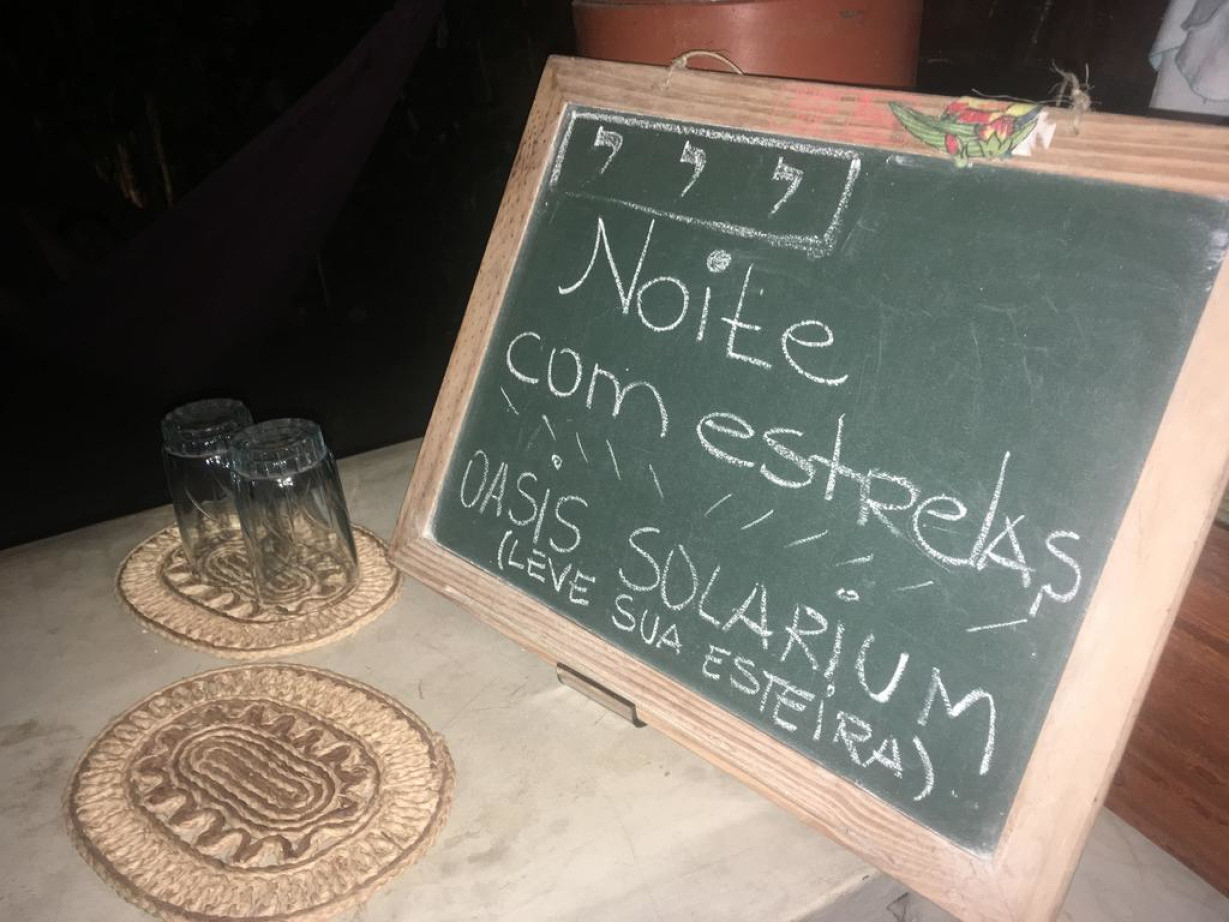 י י י
Noite
com estrelas
OASIS SOLARIUM
(LEVE SUA ESTEIRA)